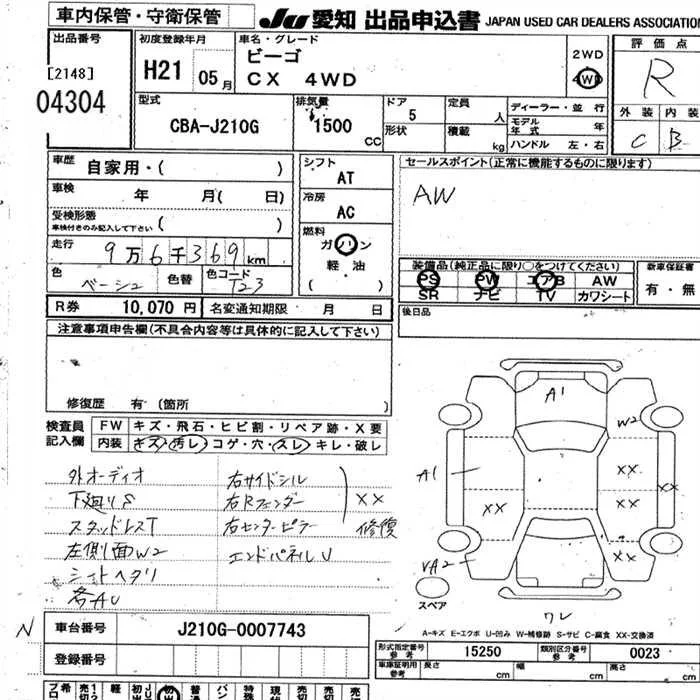 車内保管・守衛保管
JU 愛知 出品申込書 JAPAN USED CAR DEALERS ASSOCIATION
出品番号
[2148]
04304
初度登録年月
H21 05月
車名・グレード
ビーゴ
CX 4WD
2WD
4WD
評価点
R
外装 内装
C B
型式
CBA-J210G
排気量
1500 CC
ドア
5
形状
定員
人
積載
kg
ディーラー・並行
モデル年式 年
ハンドル 左・右
車歴 自家用・( )
車検 年 月( 日)
受検形態
車検付きのみ記入して下さい ( )
走行 9万6千369km
色 ベージュ 色替 色コード T23
シフト
AT
冷房
AC
燃料
ガソリン
軽油
( )
セールスポイント(正常に機能するものに限ります)
AW
装備品(純正品に限り○をつけてください)
PS PW エアB AW
SR ナビ TV カワシート
新車保証書
有・無
R券 10,070円 名変通知期限 月 日
後日品
注意事項申告欄(不具合内容等は具体的に記入して下さい)
修復歴 有 (箇所 )
検査員記入欄
FW キズ・飛石・ヒビ割・リペア跡・X要
内装 キズ・汚レ・コゲ・穴・スレ・キレ・破レ
外オーディオ
下廻りS
スタッドレスT
左側面W2
シートヘタリ
各AU
右サイドシル
右Rフェンダー
右センターピラー
XX
修復
エンドパネルU
A1
W2
A1
XX
XX
XX
XX
XX
VA2
ワレ
スペア
A-キズ E-エクボ U-凹み W-補修跡 S-サビ C-腐食 XX-交換済
N
車台番号 J210G-0007743
登録番号
形式指定番号 参考 15250 類別区分番号 参考 0023
車庫証明用 参考 長さ cm 幅 cm 高さ cm